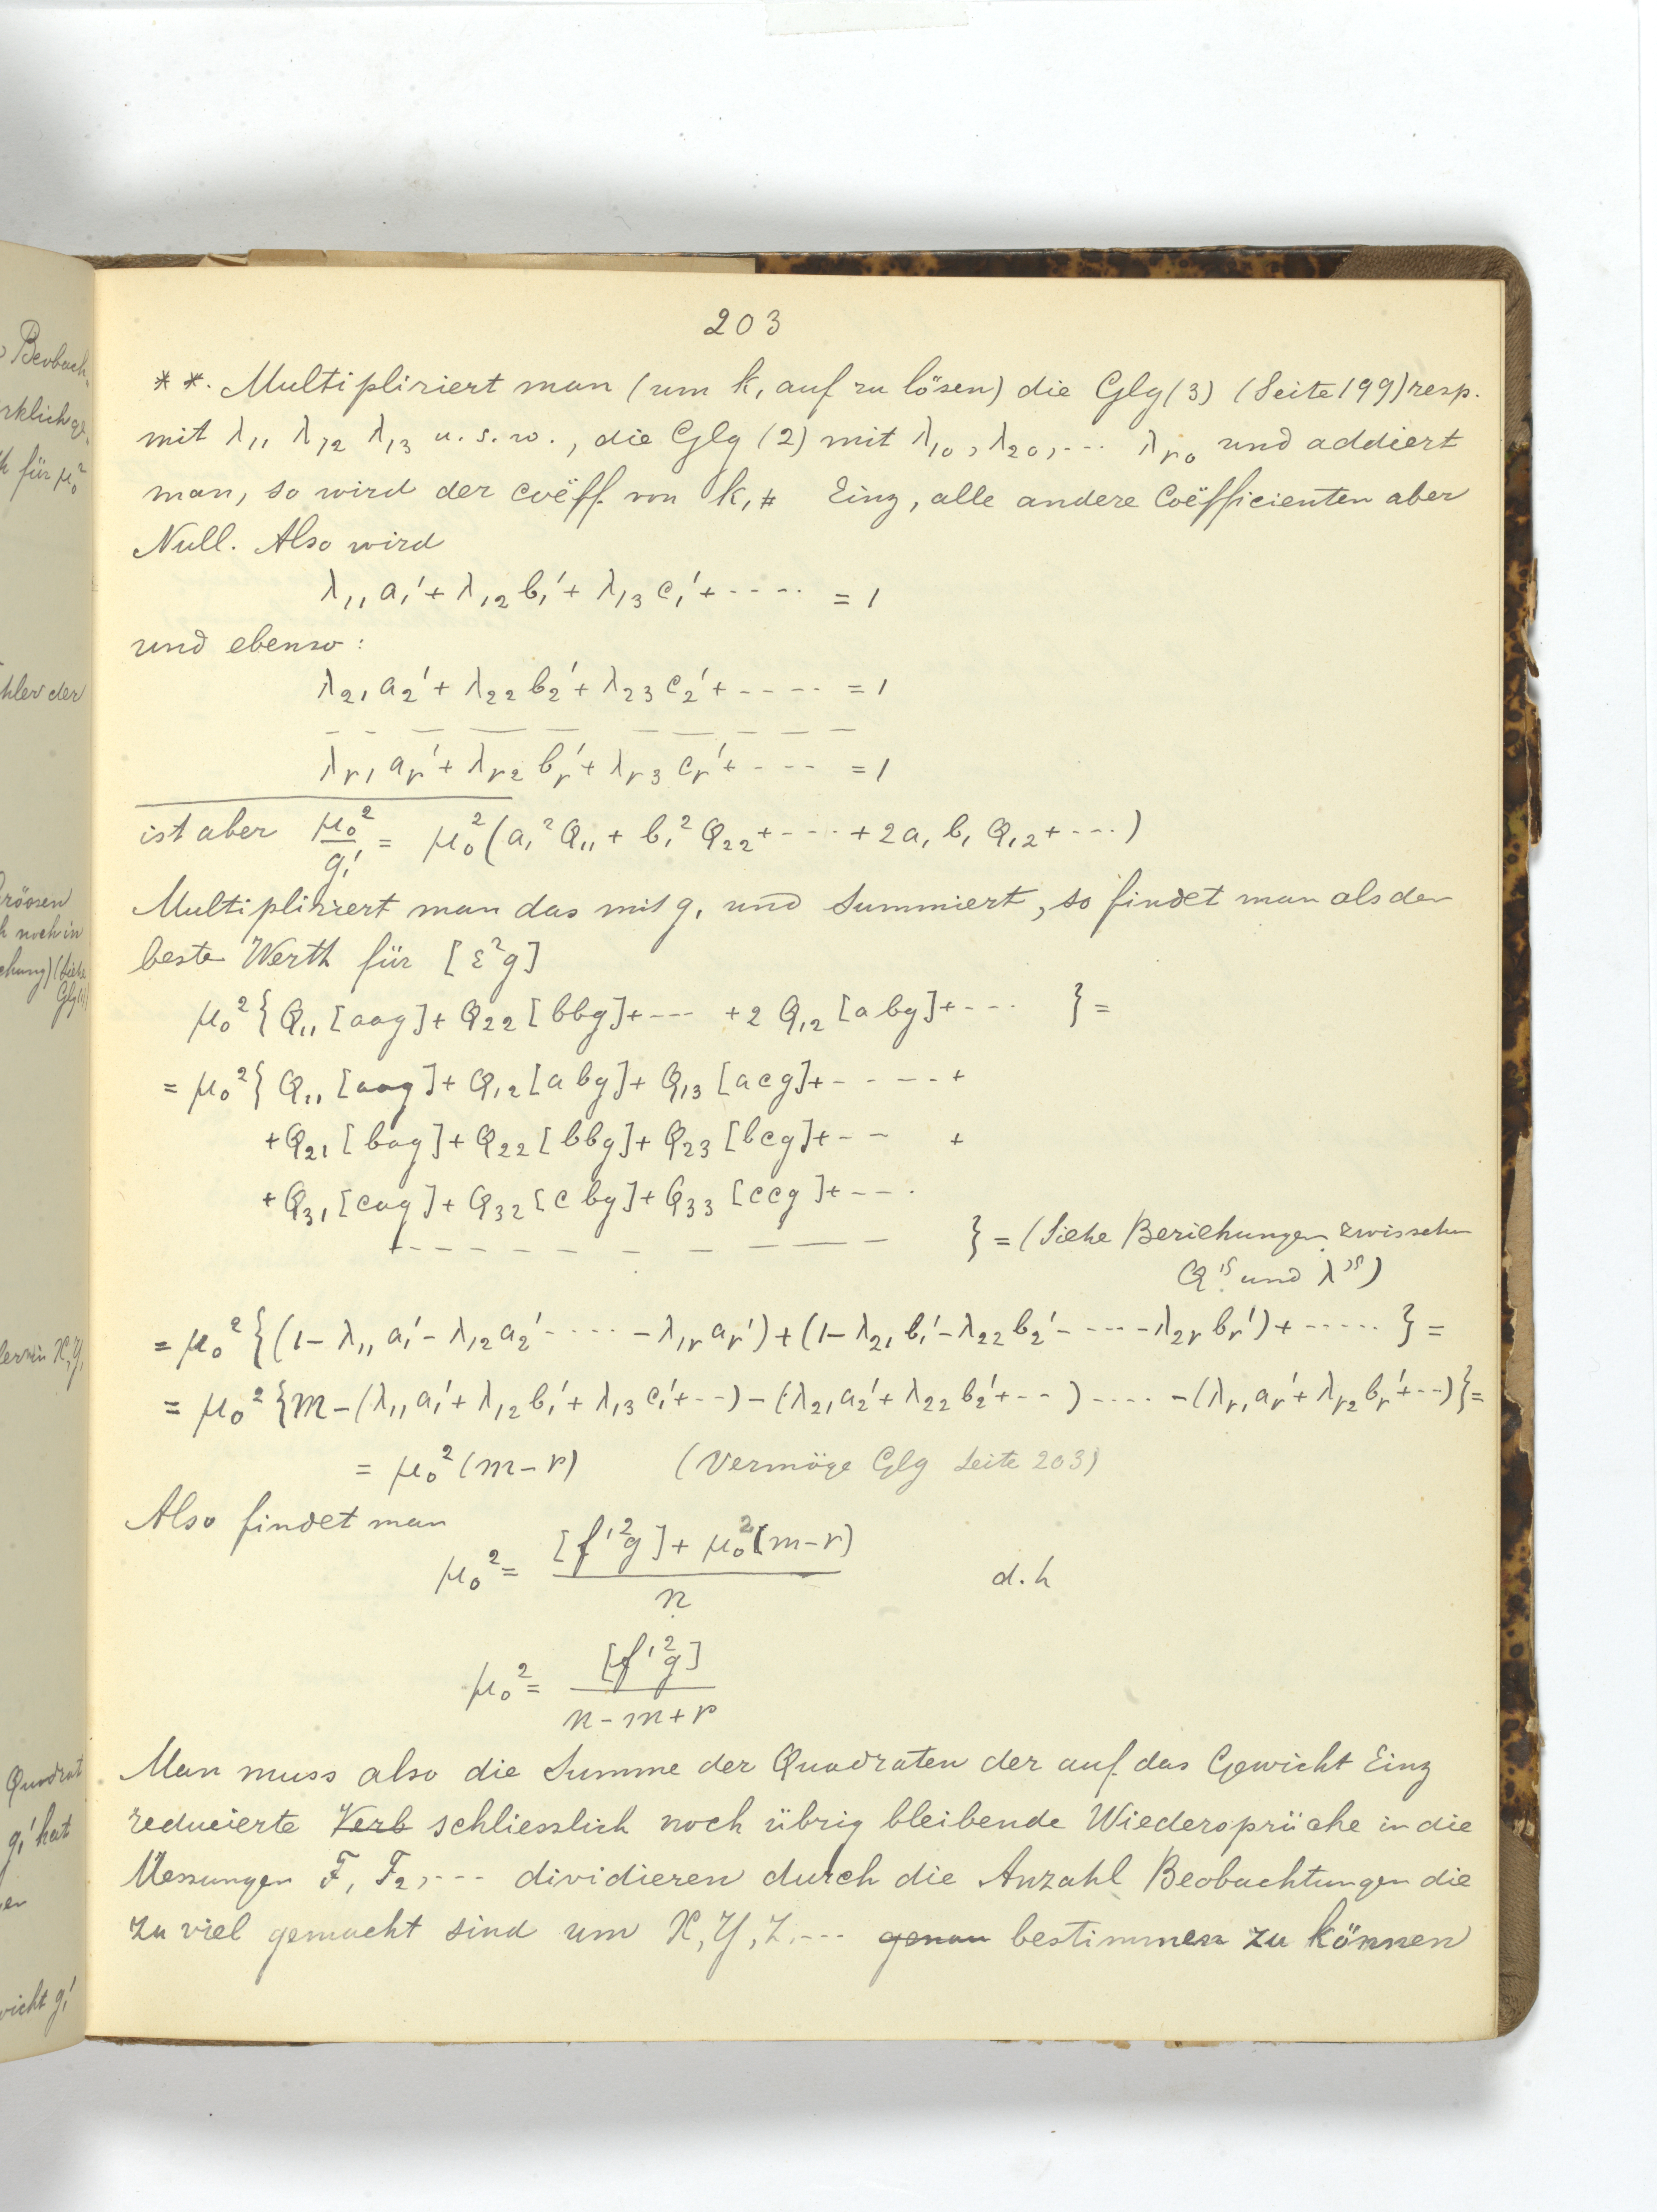 203
* *. Multipliziert man (um k, auf zu lösen) die Glg (3) (Seite 199) resp.
mit λ₁₁ λ₁₂ λ₁₃ u. s. w., die Glg (2) mit λ₁₀, λ₂₀, --- λᵣ₀ und addiert
man, so wird der coëff. von k₁ Einz, alle andere Coëfficienten aber
Null. Also wird
λ₁₁ a₁' + λ₁₂ b₁' + λ₁₃ c₁' + ---- = 1
und ebenso:
λ₂₁ a₂' + λ₂₂ b₂' + λ₂₃ c₂' + ----- = 1
λᵣ₁ aᵣ' + λᵣ₂ bᵣ' + λᵣ₃ cᵣ' + ---- = 1
ist aber μ₀²/g₁' = μ₀² (a₁² Q₁₁ + b₁² Q₂₂ + ---- + 2a₁ b₁ Q₁₂ + ---)
Multipliziert man das mit g₁ und Summiert, so findet man als der
beste Werth für [ε²g]
μ₀² { Q₁₁ [aag] + Q₂₂ [bbg] + --- + 2 Q₁₂ [abg] + --- } =
= μ₀² { Q₁₁ [aag] + Q₁₂ [abg] + Q₁₃ [acg] + ----- +
+ Q₂₁ [bag] + Q₂₂ [bbg] + Q₂₃ [bcg] + -- +
+ Q₃₁ [cag] + Q₃₂ [cbg] + Q₃₃ [ccg] + ---
+ --------- } = (Siehe Beziehungen zwischen
Q'ˢ und λ'ˢ)
= μ₀² { (1 - λ₁₁ a₁' - λ₁₂ a₂' ----- - λ₁ᵣ aᵣ') + (1 - λ₂₁ b₁' - λ₂₂ b₂' - ---- - λ₂ᵣ bᵣ') + ----- } =
= μ₀² { m - (λ₁₁ a₁' + λ₁₂ b₁' + λ₁₃ c₁' + ---) - (λ₂₁ a₂' + λ₂₂ b₂' + --) ---- - (λᵣ₁ aᵣ' + λᵣ₂ bᵣ' + --) } =
= μ₀² (m - r) (Vermöge Glg Seite 203)
Also findet man
μ₀² = ([f'²g] + μ₀² (m - r)) / n d. h
μ₀² = [f'²g] / (n - m + r)
Man muss also die Summe der Quadraten der auf das Gewicht Einz
reducierte Verb schliesslich noch übrig bleibende Wiedersprüche in die
Messungen F₁ F₂, --- dividieren durch die Anzahl Beobachtungen die
zu viel gemacht sind um X, Y, Z, --- genau bestimmen zu können
Beobach.
für μ₀²
hler der
röosen
h noch in
chung) (siehe
Glg (1)
Quadrat
g₁' hat
wicht g₁'